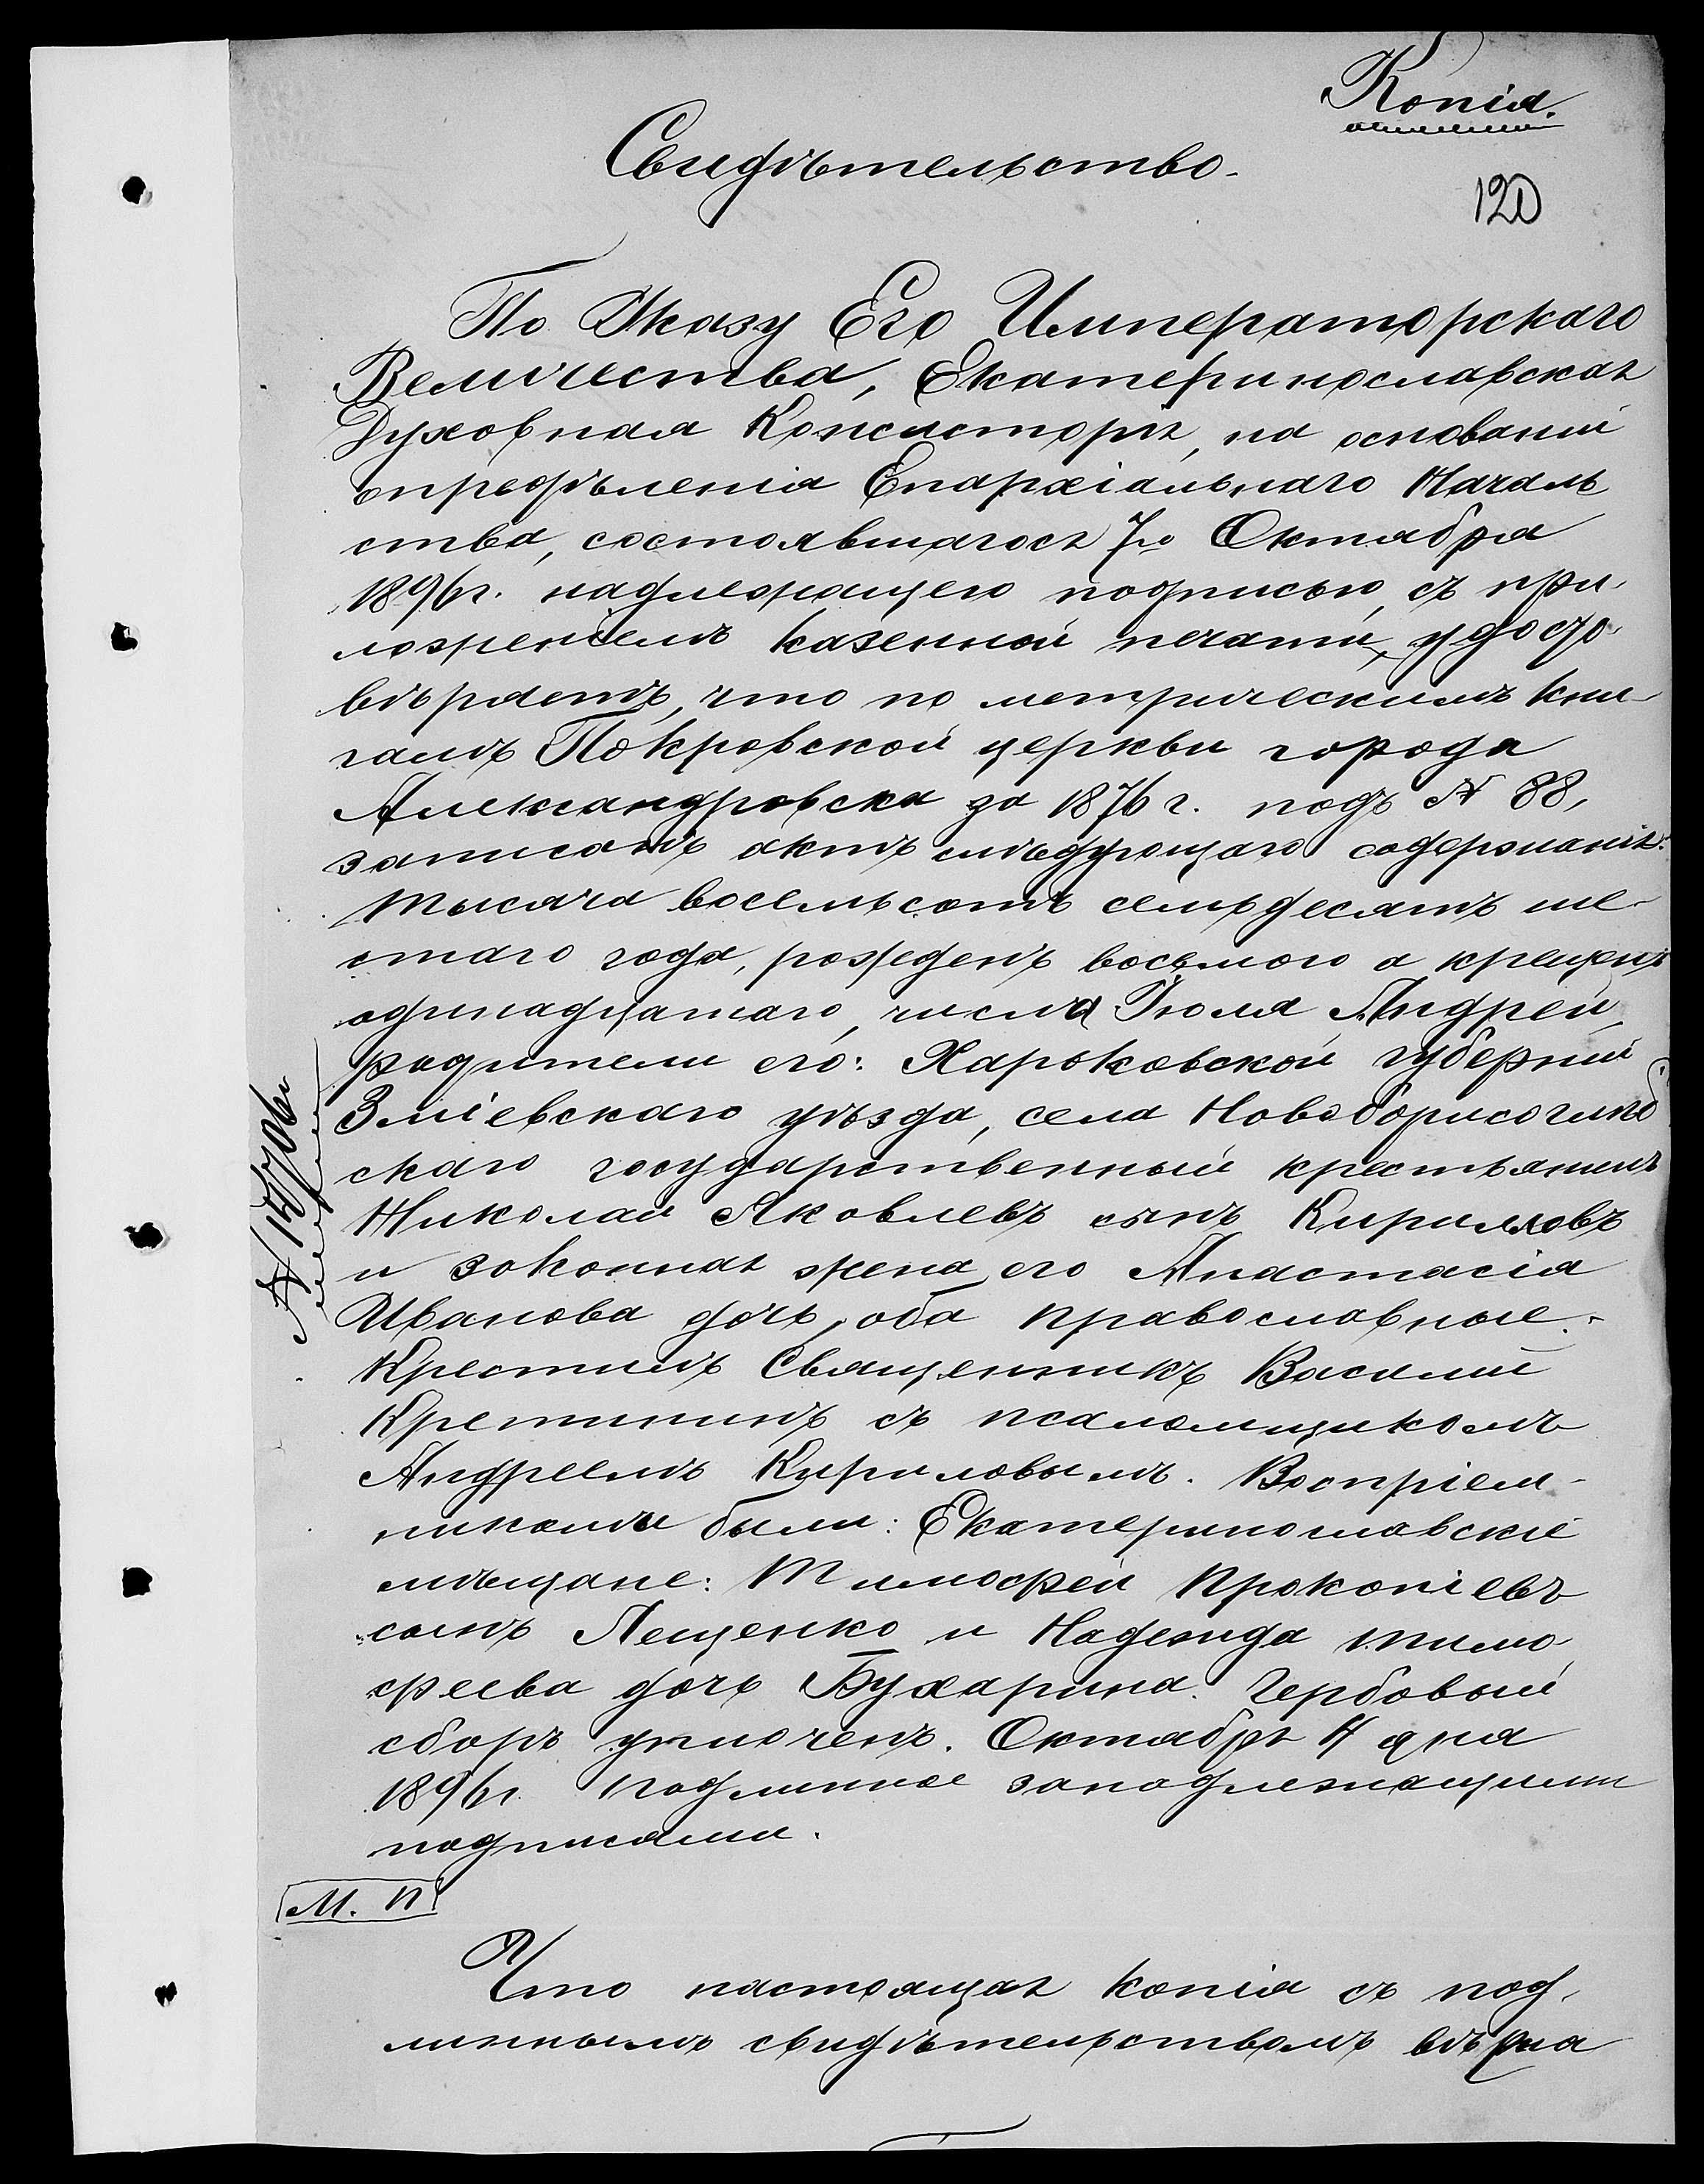 Копія.
Свидѣтельство.
120
По Указу Его Императорскаго
Величества, Екатеринославская
Духовная Консисторія, на основаніи
опредѣленія Епархіальнаго Началь
ства, состоявшагося 7го Октября
1896 г. надлежащею подписью, съ при-
ложеніемъ казенной печати, удосто-
вѣряетъ, что по метрическимъ кни-
гамъ Покровской церкви города
Александровска за 1876 г. подъ № 88,
записанъ актъ слѣдующаго содержанія:
Тысяча восемьсотъ семьдесятъ ше-
стаго года, рожденъ восьмого а крещенъ
одинадцатаго, числа Іюля Андрей,
родители его: Харьковской губерніи
Зміевскаго уѣзда, села Новоборисоглѣб
скаго государственный крестьянинъ
Николай Яковлевъ сынъ Кирилловъ
и законная жена его Анастасія
Иванова дочь, оба православные.
Крестилъ Священникъ Василій
Кретининъ съ псаломщикомъ
Андреемъ Кириловымъ. Воспріем-
никами были: Екатеринославскіе
мѣщане: Тимофей Прокопіевъ
сынъ Лещенко и Надежда Тимо
феева дочь Бухарина. Гербовый
сборъ уплоченъ. Октября 11 дня
1896 г. Подлинное занадлежащими
подписами.
М. П
Что настоящая копія съ под-
линнымъ свидѣтельствомъ вѣрна